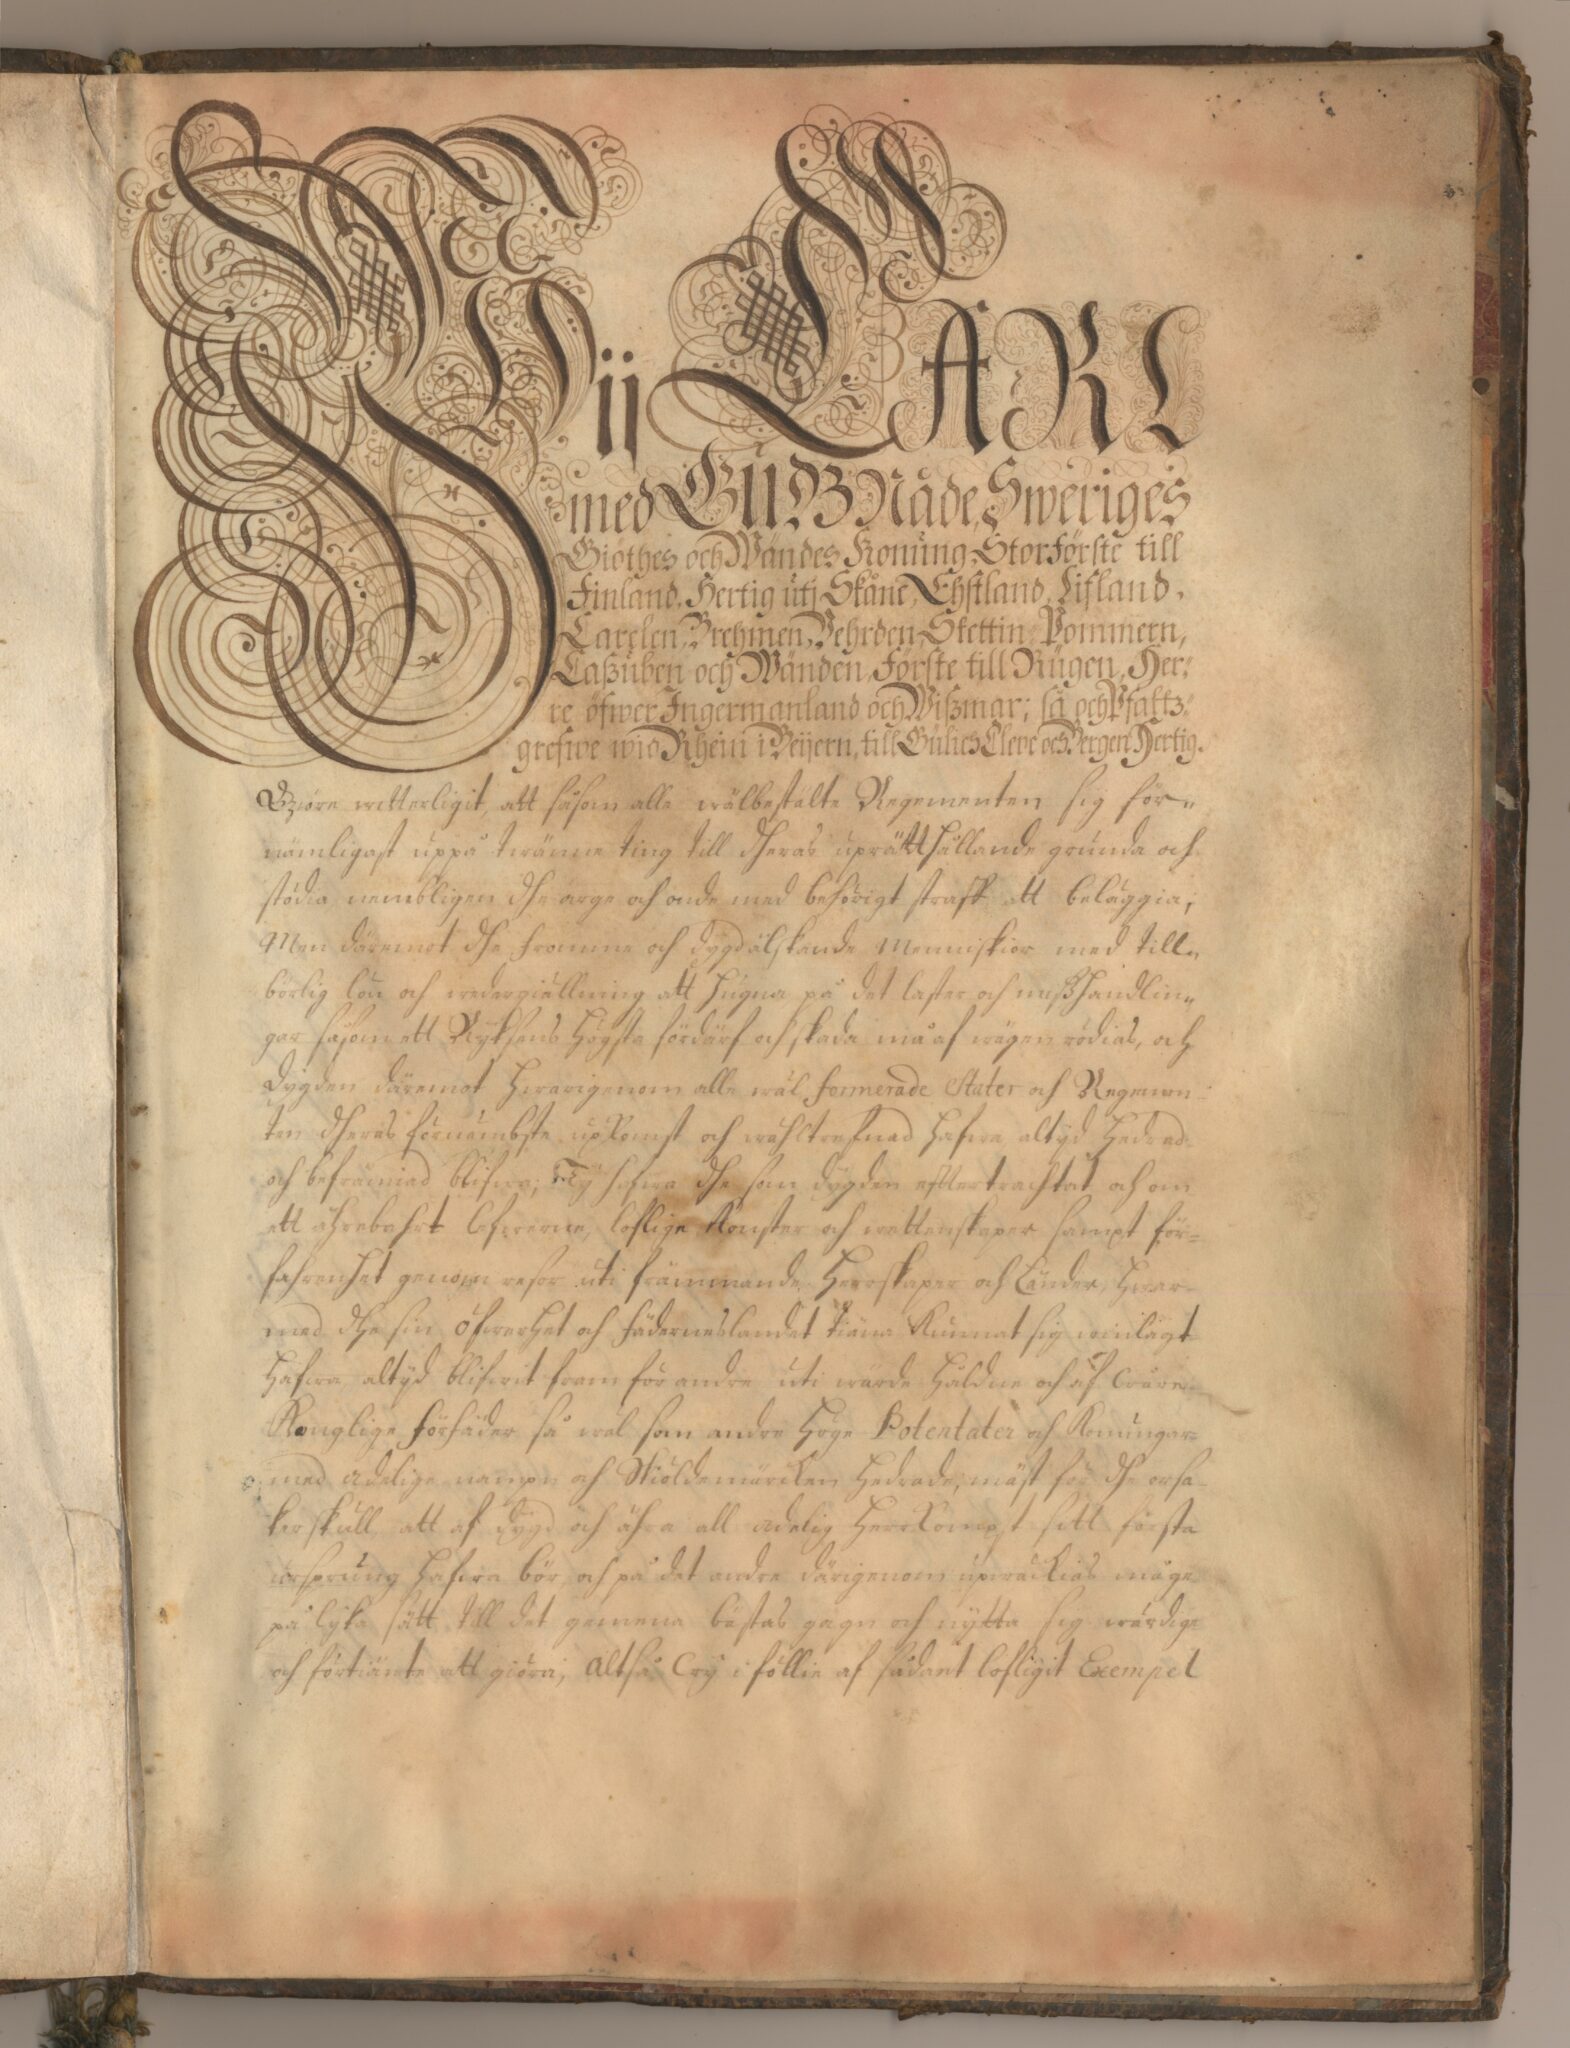 Wij CARL
med GUDZ Nåde, Sweriges
Giöthes och Wändes Konung, Storförste till
Finland, Hertig utj Skåne, Ehstland, Lifland,
Carelen, Brehmen, Vehrden, Stettin, Pommern,
Caßuben och Wänden, Förste till Rügen, Her:
re öfwer Ingermanland och Wißmar; så och Pfaltz:
grefwe wid Rhein i Beijern, till Gülich Cleve och Bergen Hertig.
Giöre witterligit, att såsom alle wälbestälte Regementen sig för„
nämligast uppå twänne ting till dheras uprätthållande grunda och
stödia nembligen dhe arge och onde med behörigt straff att beläggia;
Men däremot dhe fromme och dygdälskande Menniskior med till„
börlig lön och wedergiällning att hugna på det laster och mißhandlin„
gar såsom ett Ryksens högsta fördärf och skada må af wägen rödias, och
Dygden däremot hwarigenom alle wäl formerade Stater och Regemen
ten dheras förnembste upkomst och wähltrefnad hafwa altyd hedrad
och befrämiad blifwa; Ty hafwa dhe som dygden efftertrachtat och om
ett ährebahrt lefwerne, loflige Konster och wettenskaper sampt för=
fahrenhet genom resor uti främmande Herrskaper och Länder, hwar
med dhe sin öfwerhet och fäderneslandet tiäna kunnat sig winlagt
hafwa altyd blifwit fram för andre uti wärde håldne och af wåre
Konglige förfäder så wäl som andre höge Potentater och Konungar
med adelige nampn och Skiöldemärcken hedrade, mäst för dhe orsa
kerskull att af dygd och ähra all adelig herrkompst sitt första
ursprung hafwa bör, och på det andre därigenom upwäckias måge
på lyka sätt till det gemena bästas gagn och nytta sig wärdige
och förtiänte att giöra; altså Wy i föllie af sådant lofligit Exempel